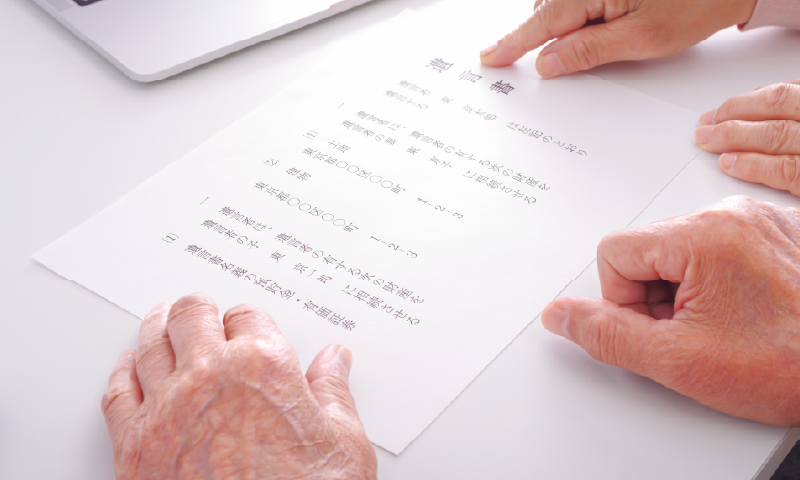 遺言書
遺言者 東 京太郎 は下記のとおり
遺言する
一 遺言者は、遺言者の有する次の財産を
遺言者の妻 東 京子 に相続させる
(1) 土地
東京都〇〇区〇〇町 1-2-3
(2) 建物
東京都〇〇区〇〇町 1-2-3
一 遺言者は、遺言者の有する次の財産を
遺言者の子 東 京一郎 に相続させる
(1) 遺言者名義の預貯金・有価証券